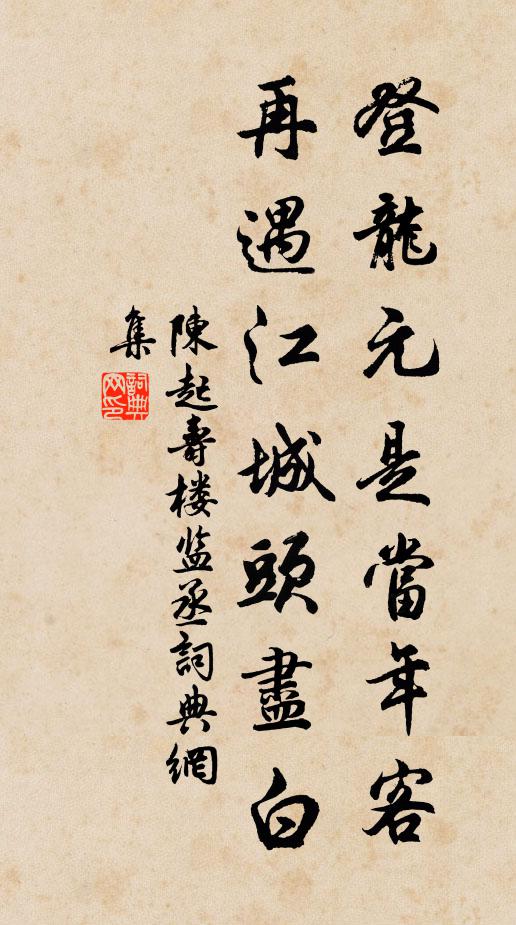 登龍元是當年客
再遇江城頭盡白
陳起壽楼监丞詞典網
集
詞典网印